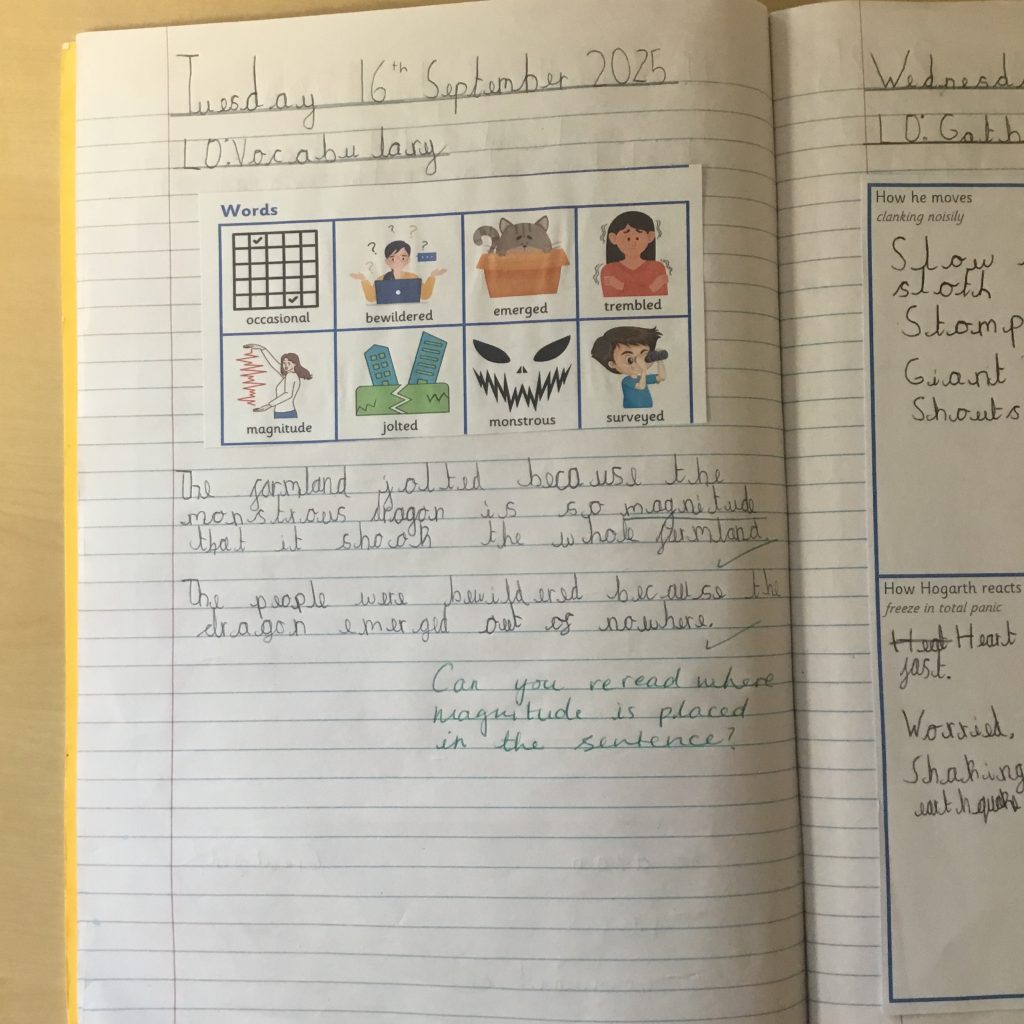 Tuesday 16th September 2025
LO: Vocabulary
Words
occasional
bewildered
emerged
trembled
magnitude
jolted
monstrous
surveyed
The farmland jolted because the
monstrous dragon is so magnitude
that it shook the whole farmland.
The people were bewildered because the
dragon emerged out of nowhere.
Can you reread where
magnitude is placed
in the sentence?
Wednesd
LO: Gath
How he moves
clanking noisily
Slow
sloth
Stomp
Giant
Shouts
How Hogarth reacts
freeze in total panic
Heart
fast.
Worried,
Shaking
earthquake